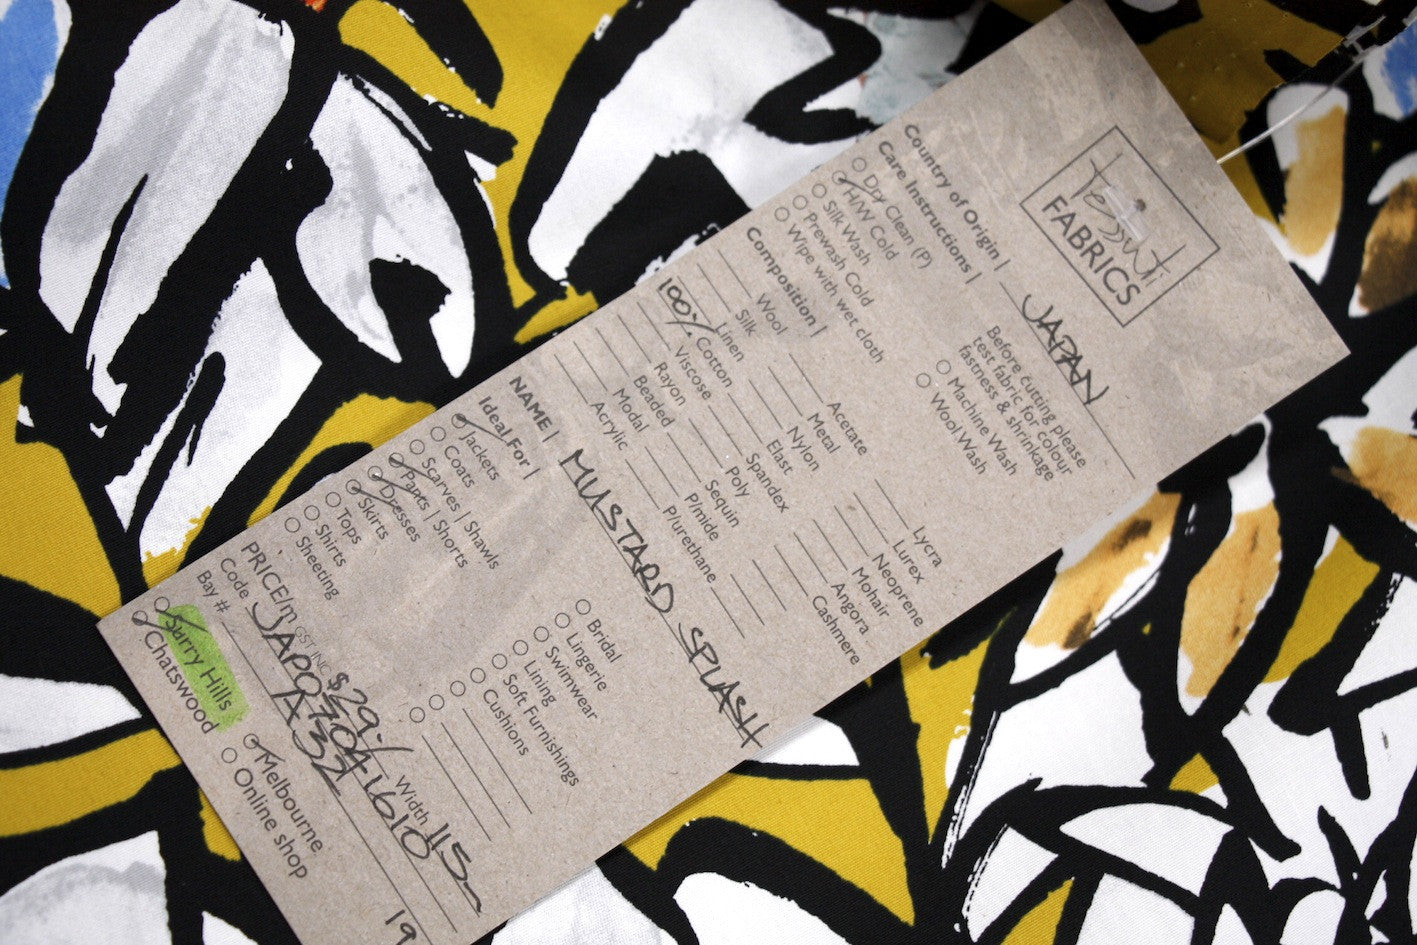 Tessuti
FABRICS
Country of Origin | JAPAN
Care Instructions |
Dry Clean (P)
H/W Cold
Silk Wash
Prewash Cold
Wipe with wet cloth
Before cutting please
test fabric for colour
fastness & shrinkage
Machine Wash
Wool Wash
Composition |
Wool
Silk
Linen
100% Cotton
Viscose
Rayon
Beaded
Modal
Acrylic
Acetate
Metal
Nylon
Elast
Spandex
Poly
Sequin
P/mide
P/urethane
Lycra
Lurex
Neoprene
Mohair
Angora
Cashmere
NAME | MUSTARD SPLASH
Ideal For |
Jackets
Coats
Scarves | Shawls
Pants | Shorts
Dresses
Skirts
Tops
Shirts
Sheeting
Bridal
Lingerie
Swimwear
Lining
Soft Furnishings
Cushions
PRICE/m GST INC $29.- Width 115-
Code
Bay # A32
Surry Hills
Chatswood
Melbourne
Online shop
19